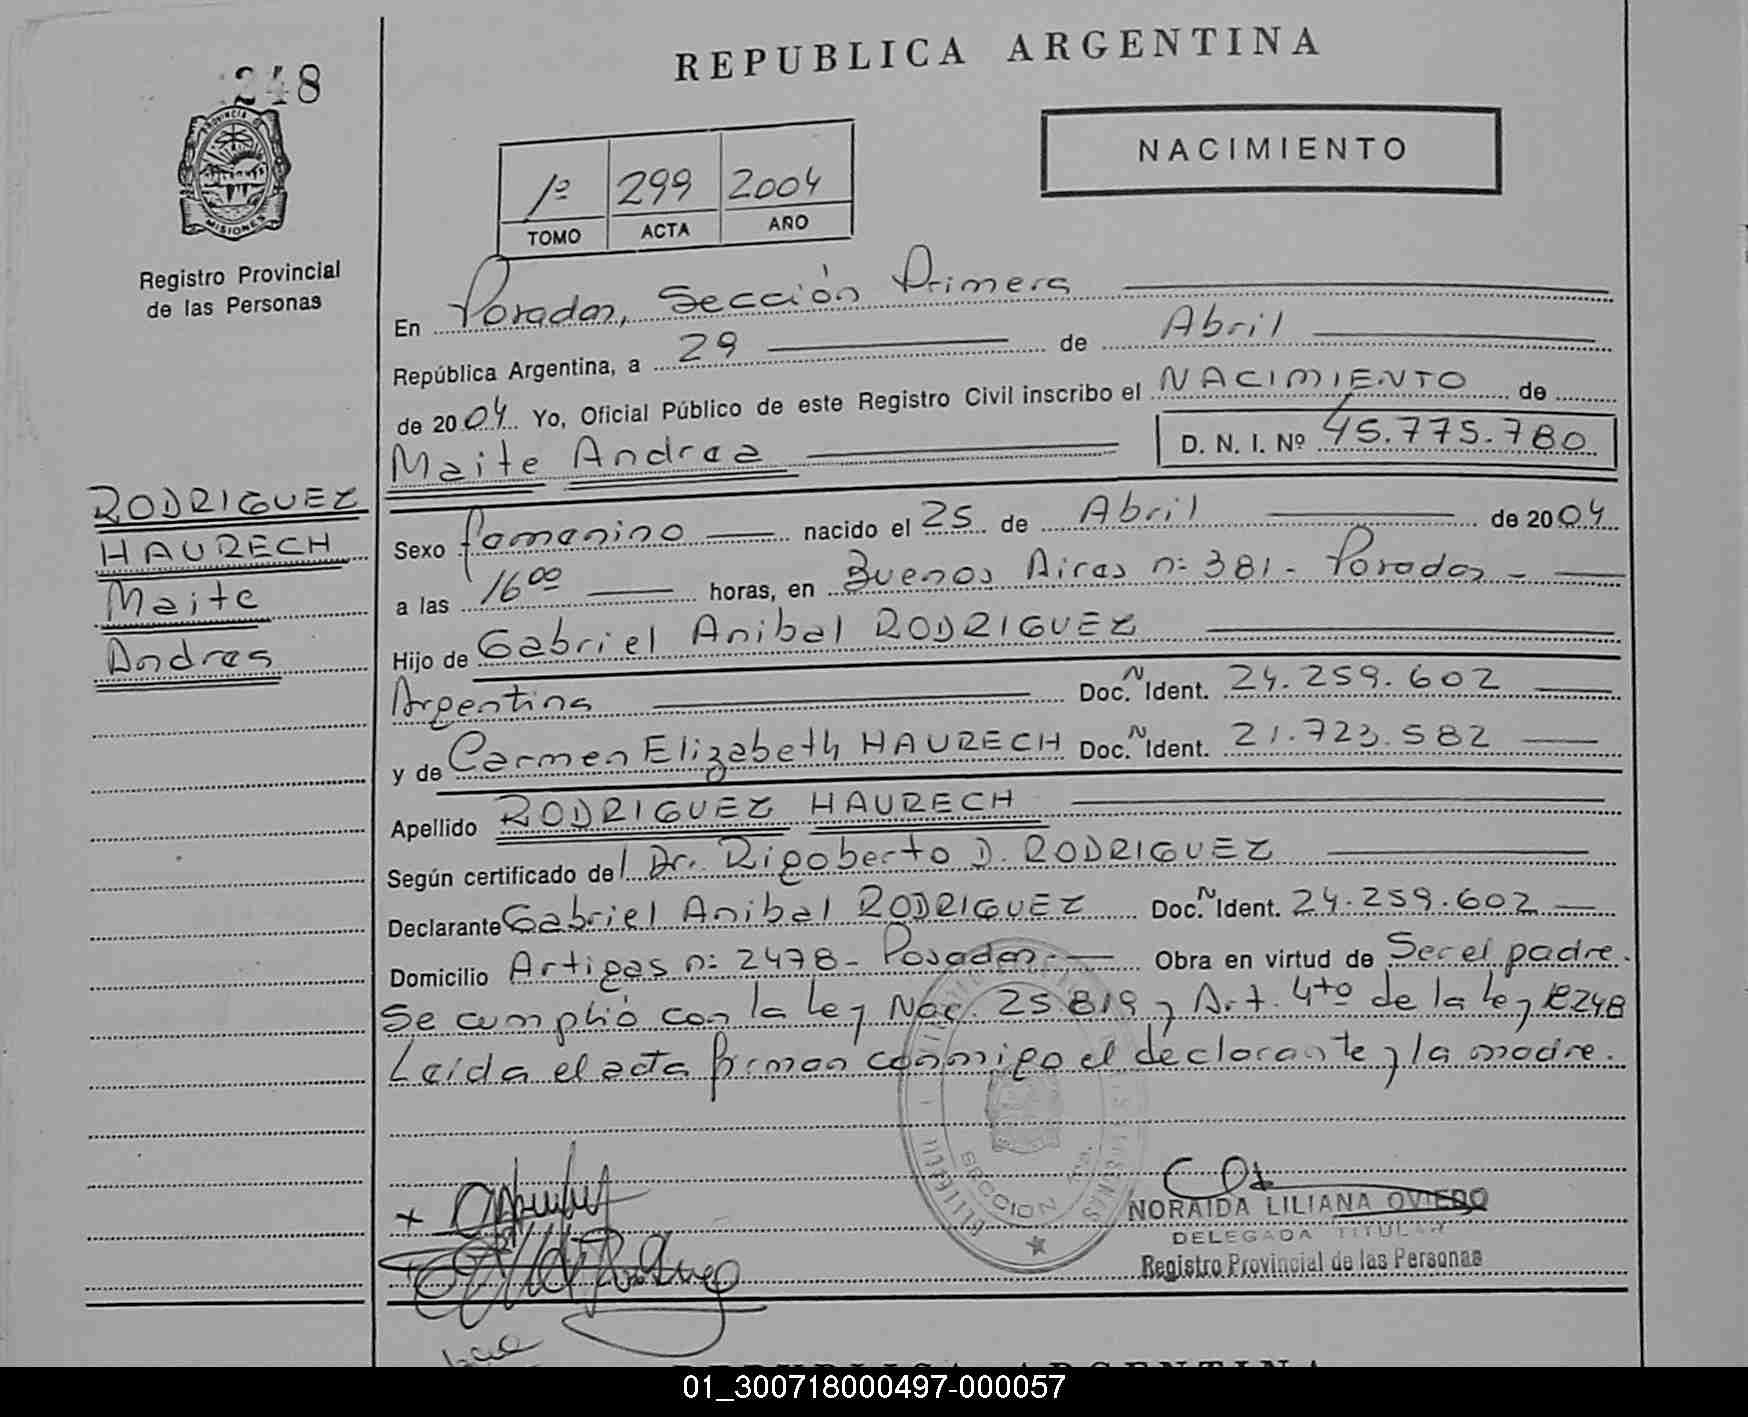 248
REPUBLICA ARGENTINA
PROVINCIA DE
MISIONES
Registro Provincial
de las Personas
NACIMIENTO
1º 299 2004
TOMO ACTA AÑO
En Posadas, Sección Primera
República Argentina, a 29 de Abril
de 2004 Yo, Oficial Público de este Registro Civil inscribo el NACIMIENTO de
Maite Andrea D. N. I. Nº 45.775.780
RODRIGUEZ
HAURECH
Maite
Andrea
Sexo femenino nacido el 25 de Abril de 2004
a las 16⁰⁰ horas, en Buenos Aires nº 381 - Posadas -
Hijo de Gabriel Anibal RODRIGUEZ
Argentina Doc. N Ident. 24.259.602
y de Carmen Elizabeth HAURECH Doc. N Ident. 21.723.582
Apellido RODRIGUEZ HAURECH
Según certificado del Dr. Rigoberto D. RODRIGUEZ
Declarante Gabriel Anibal RODRIGUEZ Doc. N Ident. 24.259.602
Domicilio Artigas nº 2478 - Posadas - Obra en virtud de Ser el padre.
Se cumplió con la ley Nac. 25.819 y Art. 4to de la ley 18248
Leída el acta firman conmigo el declarante y la madre.
SECCION 1ra.
NORAIDA LILIANA OVIEDO
DELEGADA TITULAR
Registro Provincial de las Personas
REPUBLICA ARGENTINA
01_300718000497-000057